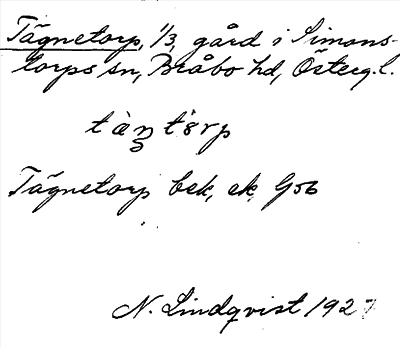 Tägnetorp, 1/3, gård i Simons-
torps sn, Bråbo hd, Österg.l.
tàŋtɵrp
Tägnetorp bek, ek, G56
N. Lindqvist 1927